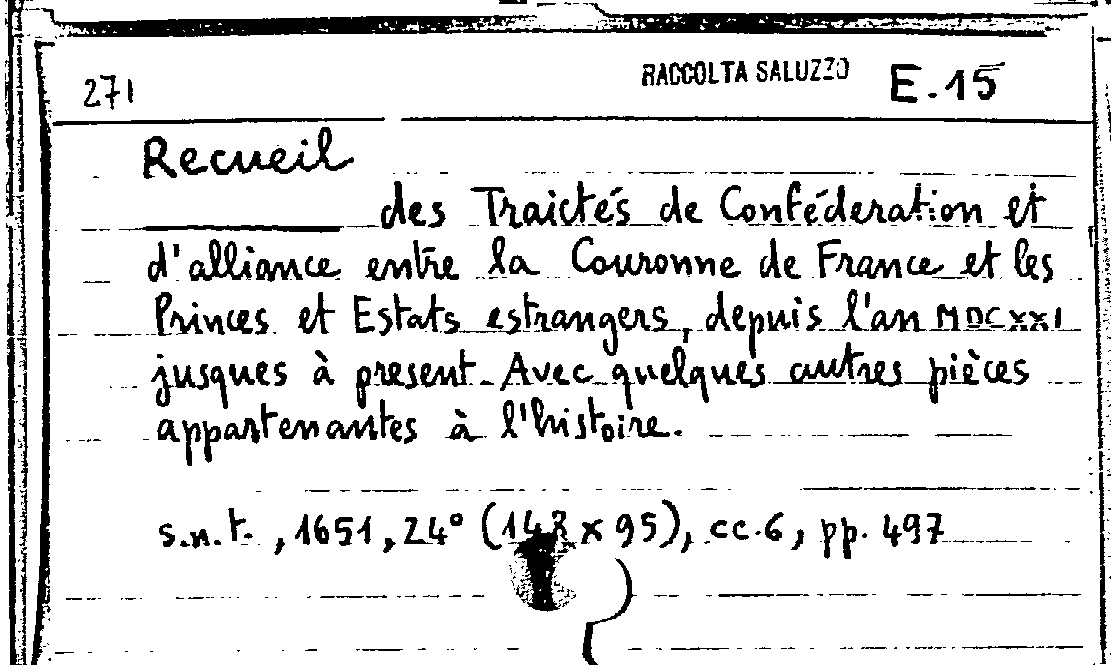 271 RACCOLTA SALUZZO E.15
Recueil
des Traictés de Conféderation et
d'alliance entre la Couronne de France et les
Princes et Estats estrangers, depuis l'an MDCXXI
jusques à present. Avec quelques autres pièces
appartenantes à l'histoire.
s.n.t., 1651, 24° (148 x 95), cc.6, pp. 497